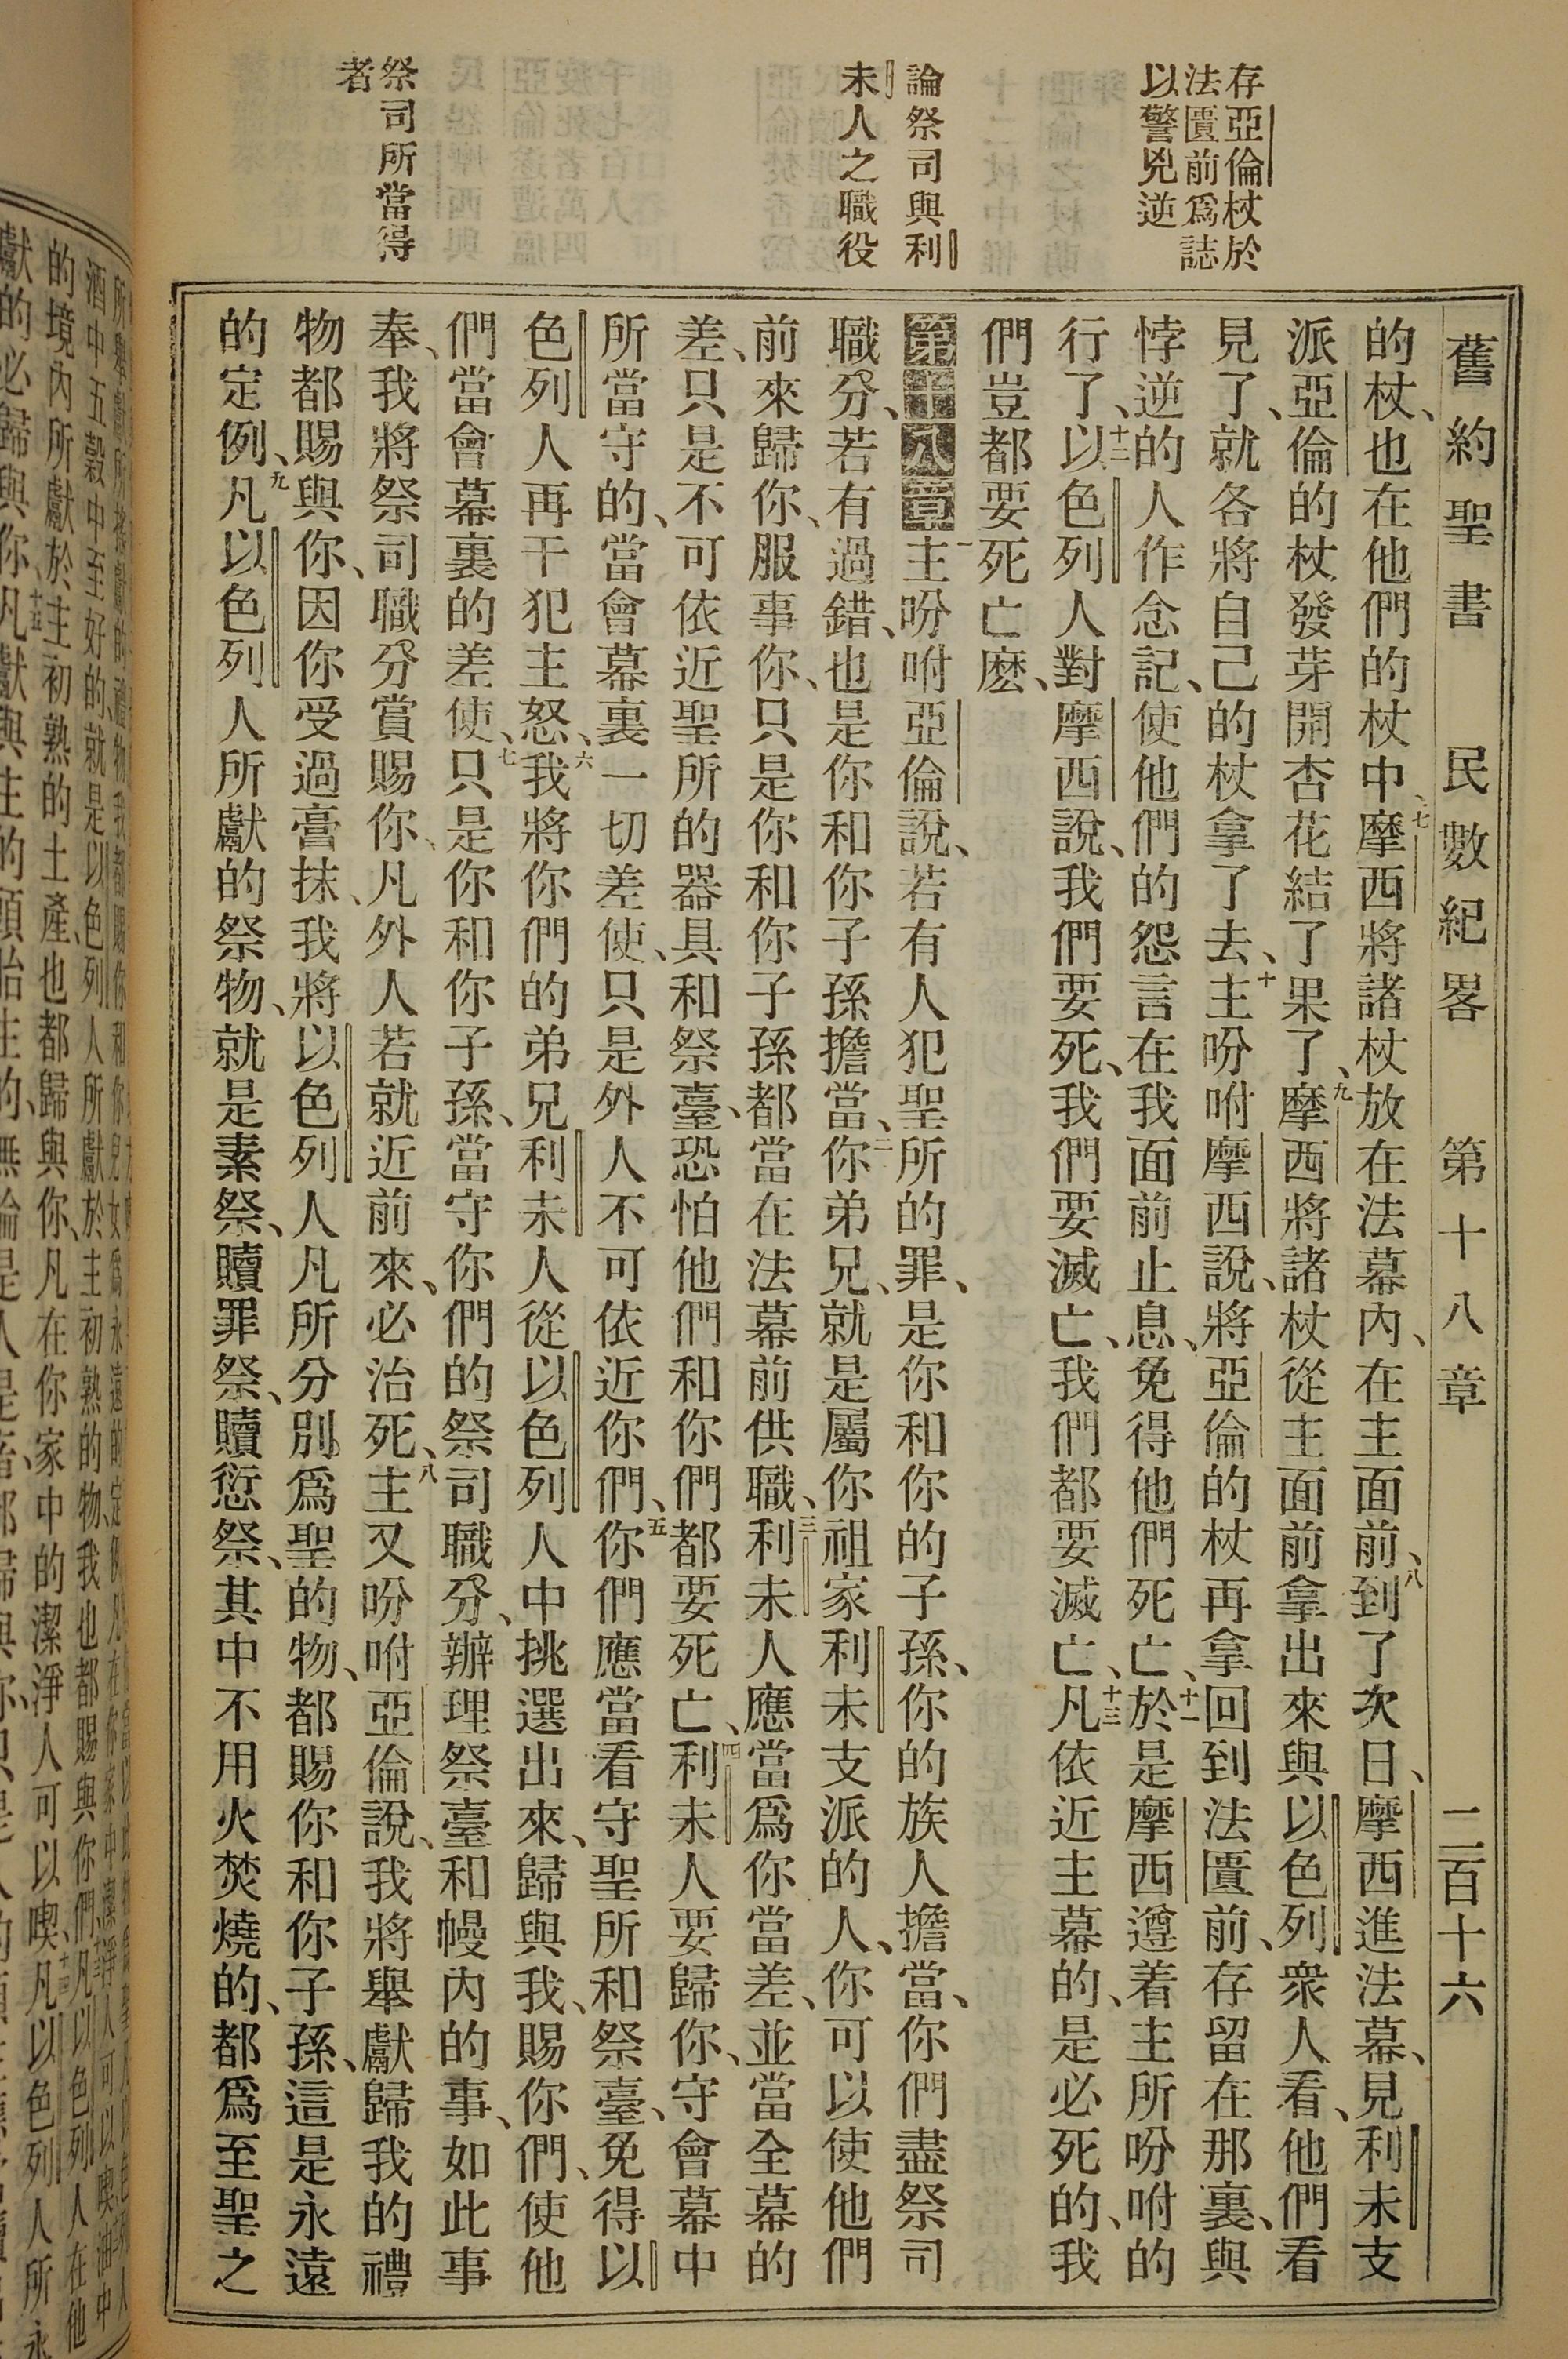 舊約聖書 民數紀畧 第十八章 二百十六
存亞倫杖於
法匱前爲誌
以警兇逆
論祭司與利
未人之職役
祭司所當得
者
的杖、也在他們的杖中、七摩西將諸杖放在法幕內、在主面前、八到了次日、摩西進法幕、見利未支
派亞倫的杖發芽開杏花結了果了、九摩西將諸杖從主面前拿出來與以色列衆人看、他們看
見了、就各將自己的杖拿了去、十主吩咐摩西說、將亞倫的杖再拿回到法匱前、存留在那裏、與
悖逆的人作念記、使他們的怨言在我面前止息、免得他們死亡、十一於是摩西遵着主所吩咐的
行了、十二以色列人對摩西說、我們要死、我們要滅亡、我們都要滅亡、十三凡依近主幕的、是必死的、我
們豈都要死亡麽、
第十八章一主吩咐亞倫說、若有人犯聖所的罪、是你和你的子孫、你的族人擔當、你們盡祭司
職分、若有過錯、也是你和你子孫擔當、二你弟兄、就是屬你祖家利未支派的人、你可以使他們
前來歸你、服事你、只是你和你子孫都當在法幕前供職、三利未人應當爲你當差、並當全幕的
差、只是不可依近聖所的器具和祭臺、恐怕他們和你們都要死亡、四利未人要歸你、守會幕中
所當守的、當會幕裏一切差使、只是外人不可依近你們、五你們應當看守聖所和祭臺、免得以
色列人再干犯主怒、六我將你們的弟兄利未人從以色列人中挑選出來、歸與我、賜你們、使他
們當會幕裏的差使、七只是你和你子孫、當守你們的祭司職分、辦理祭臺和幔內的事、如此事
奉、我將祭司職分賞賜你、凡外人若就近前來、必治死、八主又吩咐亞倫說、我將舉獻歸我的禮
物都賜與你、因你受過膏抹、我將以色列人凡所分別爲聖的物、都賜你和你子孫、這是永遠
的定例、九凡以色列人所獻的祭物、就是素祭、贖罪祭、贖愆祭、其中不用火焚燒的、都爲至聖之